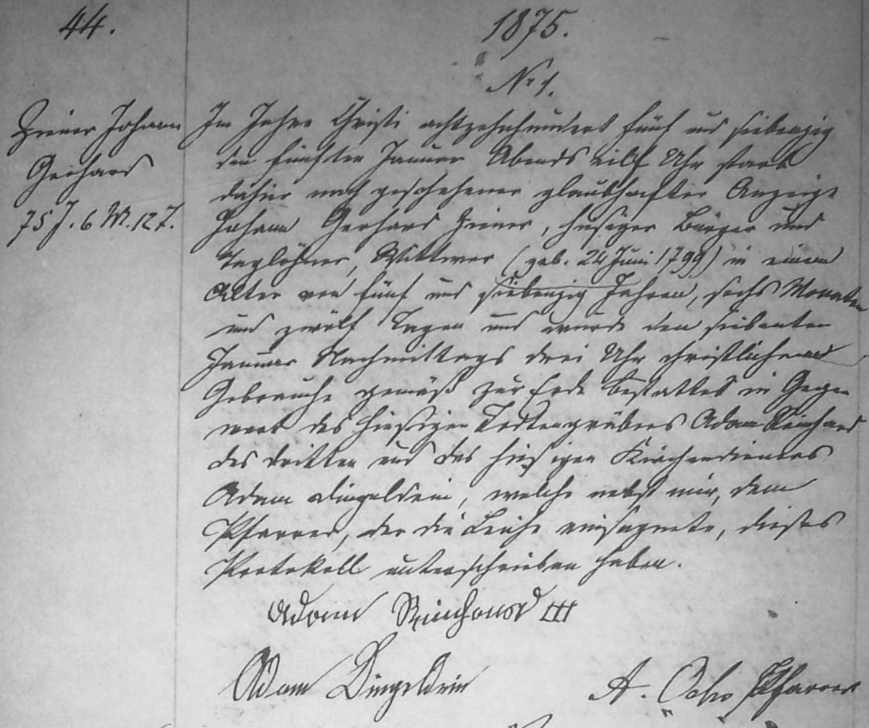 44.
1875.
No 1.
Johann
Gerhard
75 J. 6 M. 12 T.
Im Jahre Christi achtzehnhundert fünf und siebenzig
den fünften Januar Abends eilf Uhr starb
dahier nach geschehener glaubhafter Anzeige
Johann Gerhard, hiesiger Bürger und
Taglöhner, Wittwer (geb. 24 Juni 1799) in einem
Alter von fünf und siebenzig Jahren, sechs Monaten
und zwölf Tagen und wurde den siebenten
Januar Nachmittags drei Uhr christlichem
Gebrauche gemäß zur Erde bestattet in Gegen
wart des hiesigen Todtengräbers Adam Reinhard
des dritten und des hiesigen Kirchendieners
Adam Dingeldein, welche nebst mir, dem
Pfarrer, der die Leiche einsegnete, dieses
Protokoll unterschrieben haben.
Adam Reinhard III
Adam Dingeldein
A. Pfarrer